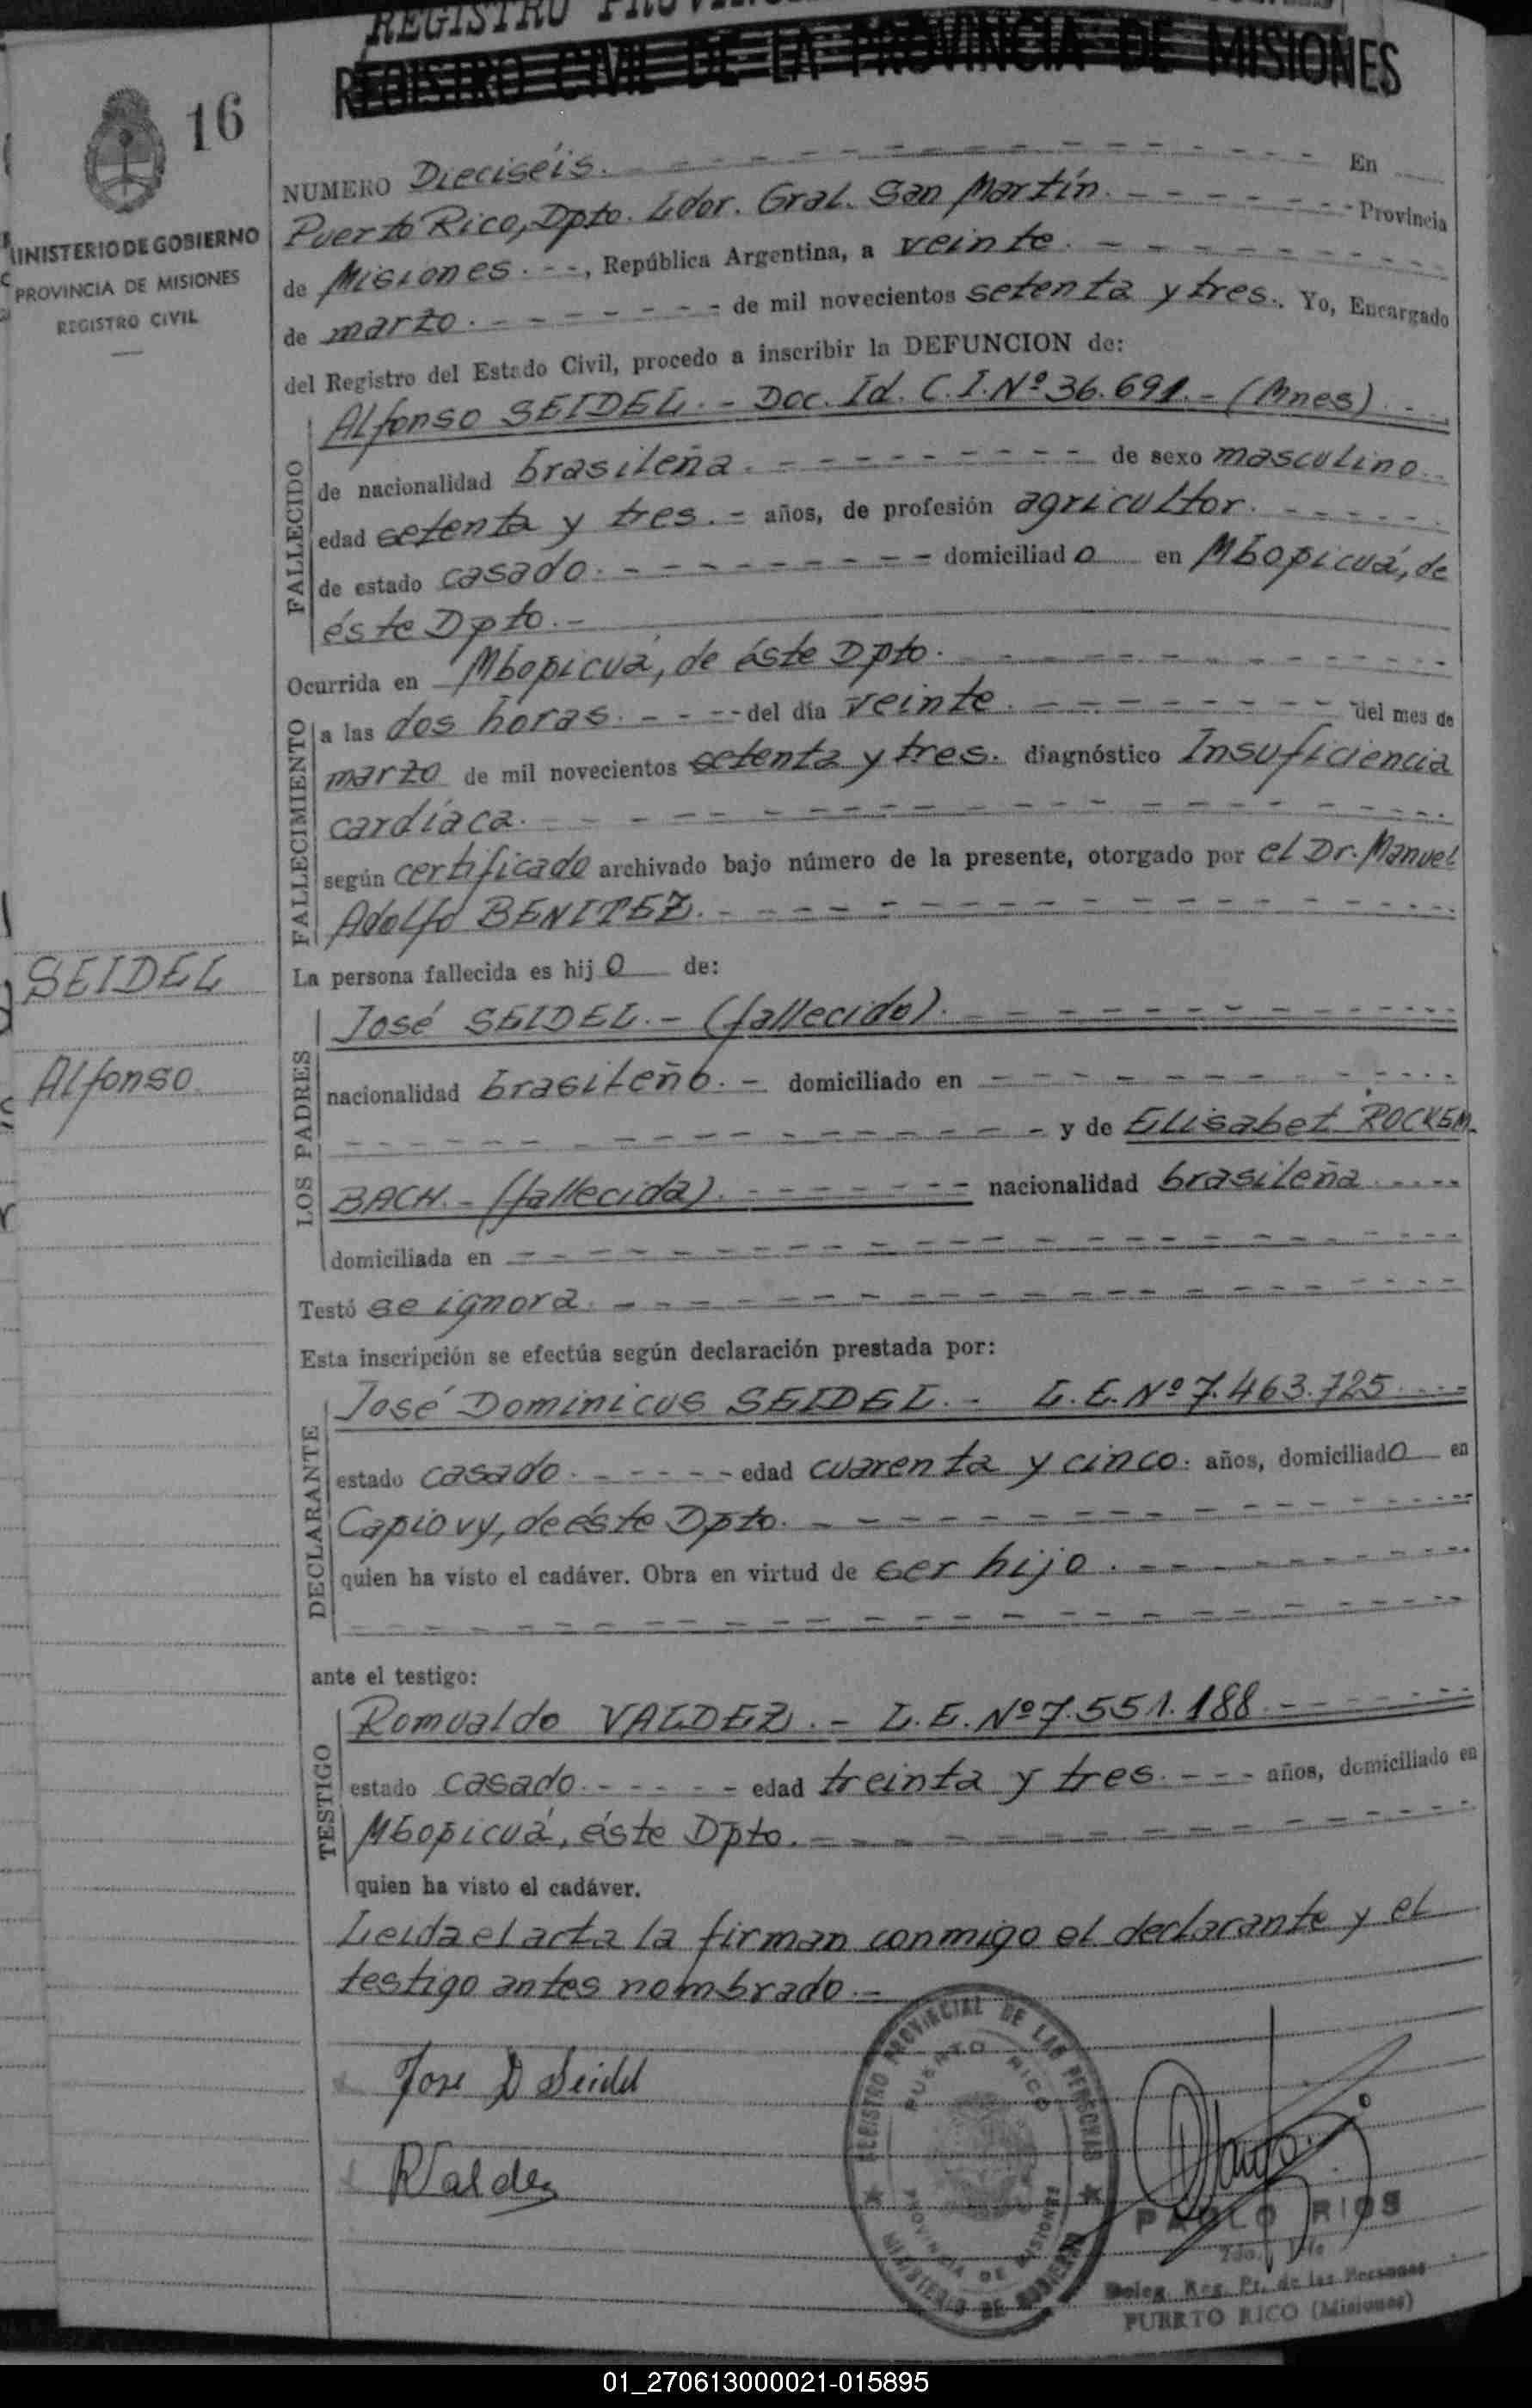 REGISTRO
REGISTRO CIVIL DE LA PROVINCIA DE MISIONES
16
MINISTERIO DE GOBIERNO
PROVINCIA DE MISIONES
REGISTRO CIVIL
SEIDEL
Alfonso
NUMERO Dieciséis. - - - En
Puerto Rico, Dpto. Ldor. Gral. San Martín. - - - Provincia
de Misiones. - -, República Argentina, a veinte. - - -
de marzo. - - - de mil novecientos setenta y tres. Yo, Encargado
del Registro del Estado Civil, procedo a inscribir la DEFUNCION de:
FALLECIDO
Alfonso SEIDEL. - Doc. Id. C.I. Nº 36.691. - (Mnes). -
de nacionalidad brasileña. - - - de sexo masculino. -
edad setenta y tres. - años, de profesión agricultor. - - -
de estado casado. - - - domiciliado en Mbopicuá, de
éste Dpto. -
Ocurrida en Mbopicuá, de éste Dpto. - - -
FALLECIMIENTO
a las dos horas. - - - del día veinte. - - - del mes de
marzo de mil novecientos setenta y tres. diagnóstico Insuficiencia
cardíaca. - - -
según certificado archivado bajo número de la presente, otorgado por el Dr. Manuel
Adolfo BENITEZ. - - -
La persona fallecida es hijo de:
LOS PADRES
José SEIDEL. - (fallecido). - - -
nacionalidad brasileño. - domiciliado en - - -
- - - y de Elisabet ROCKEM-
BACH. - (fallecida). - - - nacionalidad brasileña. - - -
domiciliada en - - -
Testó se ignora. - - -
Esta inscripción se efectúa según declaración prestada por:
DECLARANTE
José Dominicus SEIDEL. - L.E. Nº 7.463.725. - - -
estado casado. - - - edad cuarenta y cinco. años, domiciliado en
Capiovy, de éste Dpto. - - -
quien ha visto el cadáver. Obra en virtud de ser hijo. - - -
ante el testigo:
TESTIGO
Romualdo VALDEZ. - L.E. Nº 7.551.188. - - -
estado casado. - - - edad treinta y tres. - - - años, domiciliado en
Mbopicuá, éste Dpto. - - -
quien ha visto el cadáver.
Leida el acta la firman conmigo el declarante y el
testigo antes nombrado. -
Jose D Seidel
R Valdez
REGISTRO PROVINCIAL DE LAS PERSONAS
PUERTO RICO
PROVINCIA DE MISIONES
MINISTERIO DE GOBIERNO
PABLO RIOS
2do. Jefe
Deleg. Reg. Pr. de las Personas
PUERTO RICO (Misiones)
01_270613000021-015895